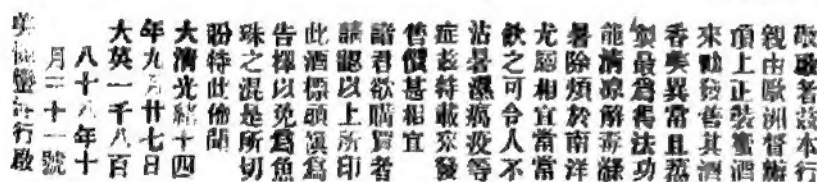 敬啟者茲本行
親由歐洲督辦
頂上正裝酒
來叻發售其酒
香美異常且蒸
製最爲得法功
能清凉解毒滌
暑除煩於南洋
尤相宜當常
飲之可令人不
沾暑濕疫等
症茲特載來發
售價甚相宜
諸君欲購買者
請認以上所印
此酒標頭爲
告以免爲魚
珠之混是所切
盼特此佈聞
大清光緒十四
年九月廿七日
大英一千八百
八十八年十
月三十一號
行啟